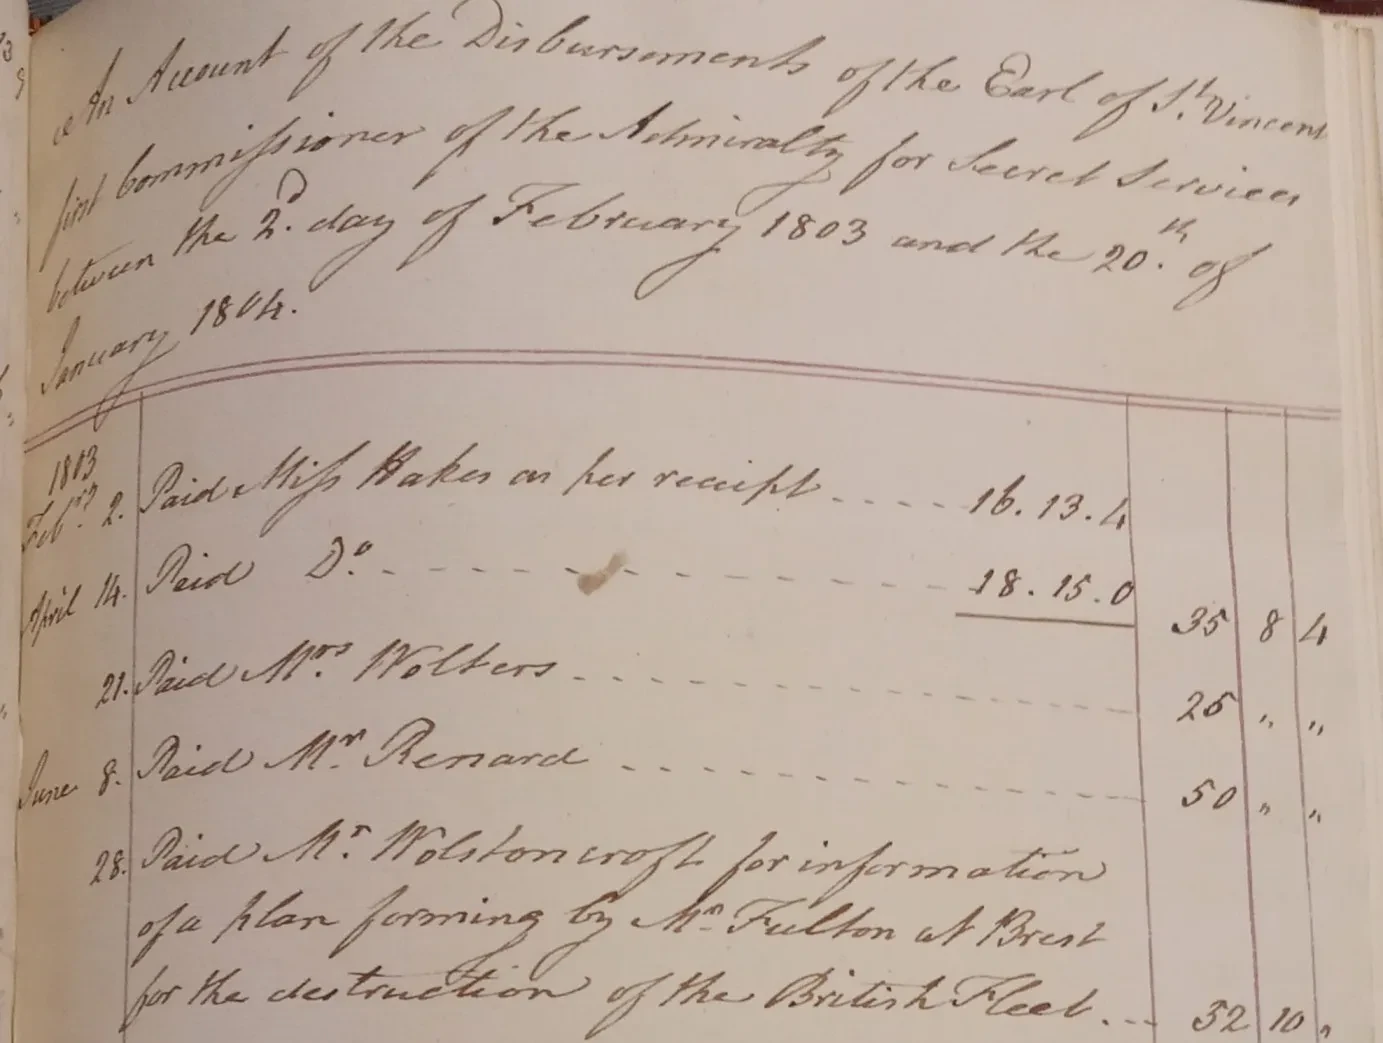 An Account of the Disbursements of the Earl of St. Vincent
first Commissioner of the Admiralty for Secret Services
between the 2d. day of February 1803 and the 20th. of
January 1804.
1803
Febry. 2. Paid Miss Hakes as per receipt .... 16.13.4
April 14. Paid Do. ---------- 18.15.0 35 8 4
21. Paid Mrs. Wolters ---------- 25 " "
June 8. Paid Mr. Renard ---------- 50 " "
28. Paid Mr. Wolstoncroft for information
of a plan forming by Mr. Fulton at Brest
for the destruction of the British Fleet ... 52 10 "